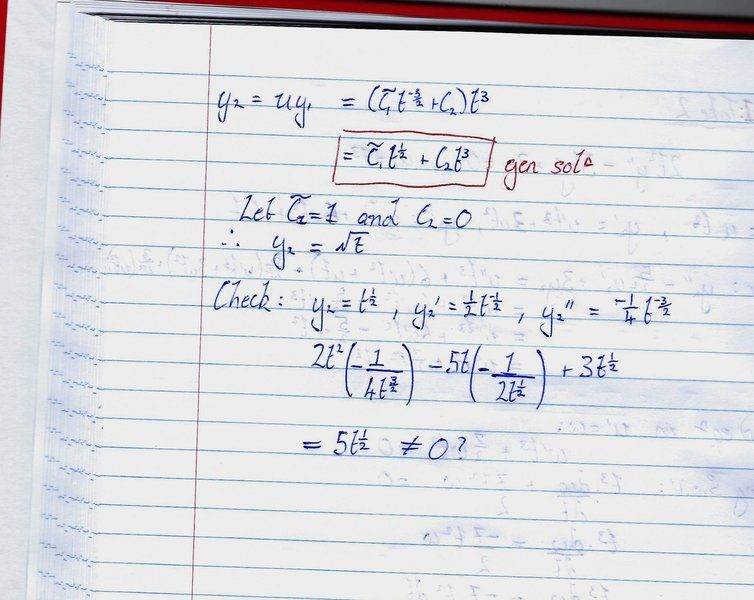 y₂ = uy₁ = (c̃₁t^(-5/2) + c₂)t³
= c̃₁t^(1/2) + c₂t³ gen solⁿ
Let c̃₂ = 1 and c₂ = 0
∴ y₂ = √t
Check: y₂ = t^(1/2), y₂' = 1/2 t^(-1/2), y₂'' = -1/4 t^(-3/2)
2t²(-1/(4t^(3/2))) - 5t(-1/(2t^(1/2))) + 3t^(1/2)
= 5t^(1/2) ≠ 0?